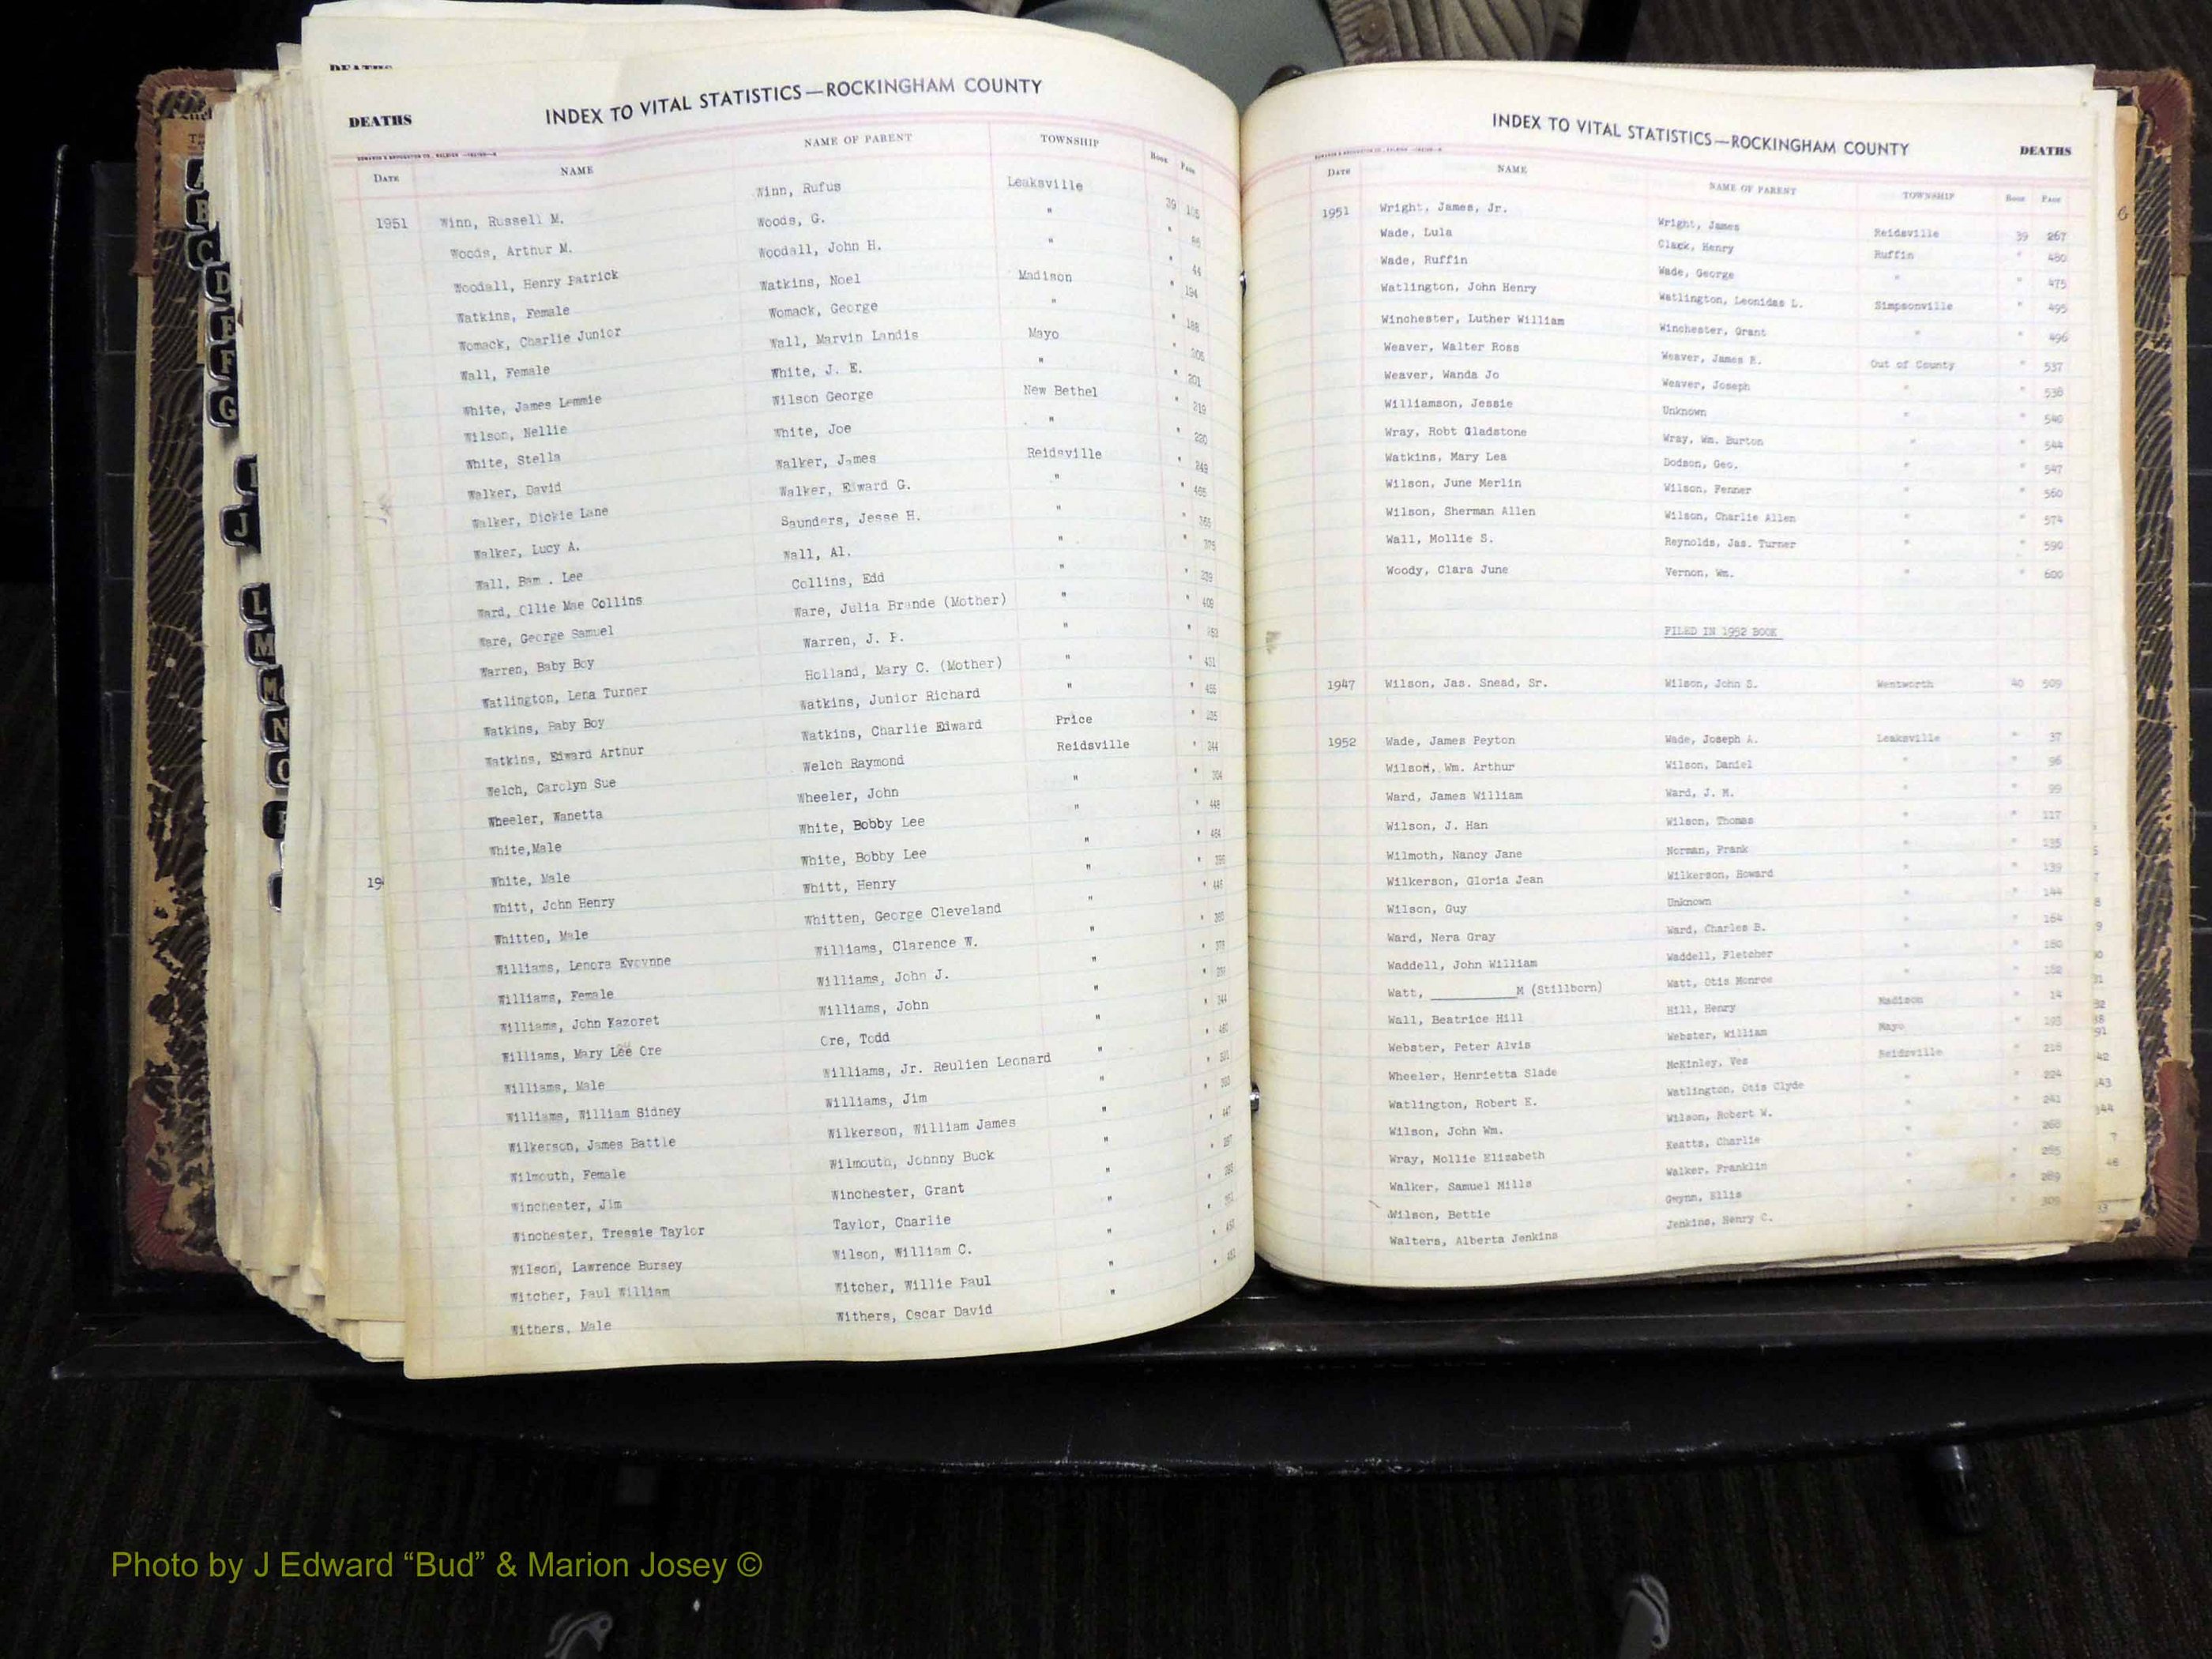 DEATHS
INDEX TO VITAL STATISTICS—ROCKINGHAM COUNTY
DATE NAME NAME OF PARENT TOWNSHIP Book Page
1951 Winn, Russell M. Winn, Rufus Leaksville 39
Woods, Arthur M. Woods, G. "
Woodall, Henry Patrick Woodall, John H. " " 44
Watkins, Female Watkins, Noel Madison " 194
Womack, Charlie Junior Womack, George " " 188
Wall, Female Wall, Marvin Landis Mayo "
White, James Lemmie White, J. E. " " 201
Wilson, Nellie Wilson George New Bethel " 219
White, Stella White, Joe " " 220
Walker, David Walker, James Reidsville " 249
Walker, Dickie Lane Walker, Edward G. " "
Walker, Lucy A. Saunders, Jesse H. " "
Wall, Lee Wall, Al. " "
Ward, Ollie Mae Collins Collins, Edd " "
Ware, George Samuel Ware, Julia Brande (Mother) " " 409
Warren, Baby Boy Warren, J. P. " "
Watlington, Lena Turner Holland, Mary C. (Mother) " "
Watkins, Baby Boy Watkins, Junior Richard " "
Watkins, Edward Arthur Watkins, Charlie Edward Price "
Welch, Carolyn Sue Welch Raymond Reidsville " 244
Wheeler, Wanetta Wheeler, John " "
White,Male White, Bobby Lee " "
White, Male White, Bobby Lee " "
19
Whitt, John Henry Whitt, Henry " "
Whitten, Male Whitten, George Cleveland " "
Williams, Lenora Evoynne Williams, Clarence W. " "
Williams, Female Williams, John J. " "
Williams, John Kazoret Williams, John " "
Williams, Mary Lee Ore Ore, Todd " "
Williams, Male Williams, Jr. Reulien Leonard " "
Williams, William Sidney Williams, Jim " "
Wilkerson, James Battle Wilkerson, William James " "
Wilmouth, Female Wilmouth, Johnny Buck " "
Winchester, Jim Winchester, Grant " "
Winchester, Tressie Taylor Taylor, Charlie " "
Wilson, Lawrence Bursey Wilson, William C. " "
Witcher, Paul William Witcher, Willie Paul " "
Withers, Male Withers, Oscar David " "
INDEX TO VITAL STATISTICS—ROCKINGHAM COUNTY
DEATHS
DATE NAME NAME OF PARENT TOWNSHIP Book Page
1951 Wright, James, Jr. Wright, James Reidsville 39 267
Wade, Lula Clack, Henry Ruffin " 480
Wade, Ruffin Wade, George " " 475
Watlington, John Henry Watlington, Leonidas L. Simpsonville " 495
Winchester, Luther William Winchester, Grant " " 496
Weaver, Walter Ross Weaver, James R. Out of County " 537
Weaver, Wanda Jo Weaver, Joseph " " 538
Williamson, Jessie Unknown " " 540
Wray, Robt Gladstone Wray, Wm. Burton " " 544
Watkins, Mary Lea Dodson, Geo. " " 547
Wilson, June Merlin Wilson, Fenner " " 560
Wilson, Sherman Allen Wilson, Charlie Allen " " 574
Wall, Mollie S. Reynolds, Jas. Turner " " 590
Woody, Clara June Vernon, Wm. " " 600
FILED IN 1952 BOOK
1947 Wilson, Jas. Snead, Sr. Wilson, John S. Wentworth 40 509
1952 Wade, James Peyton Wade, Joseph A. Leaksville " 37
Wilson, Wm. Arthur Wilson, Daniel " " 96
Ward, James William Ward, J. M. " " 99
Wilson, J. Han Wilson, Thomas " " 117
Wilmoth, Nancy Jane Norman, Frank " " 135
Wilkerson, Gloria Jean Wilkerson, Howard " " 139
Wilson, Guy Unknown " " 144
Ward, Nera Gray Ward, Charles B. " " 164
Waddell, John William Waddell, Fletcher " " 180
Watt, M (Stillborn) Watt, Otis Monroe " " 182
Wall, Beatrice Hill Hill, Henry Madison " 14
Webster, Peter Alvis Webster, William Mayo " 193
Wheeler, Henrietta Slade McKinley, Ves Reidsville " 216
Watlington, Robert E. Watlington, Otis Clyde " " 224
Wilson, John Wm. Wilson, Robert W. " " 241
Wray, Mollie Elizabeth Keatts, Charlie " " 268
Walker, Samuel Mills Walker, Franklin " " 285
Wilson, Bettie Gwynn, Ellis " " 289
Walters, Alberta Jenkins Jenkins, Henry C. " " 309
A
B
C
D
E
F
G
I
J
L
M
N
O
Photo by J Edward “Bud” & Marion Josey ©